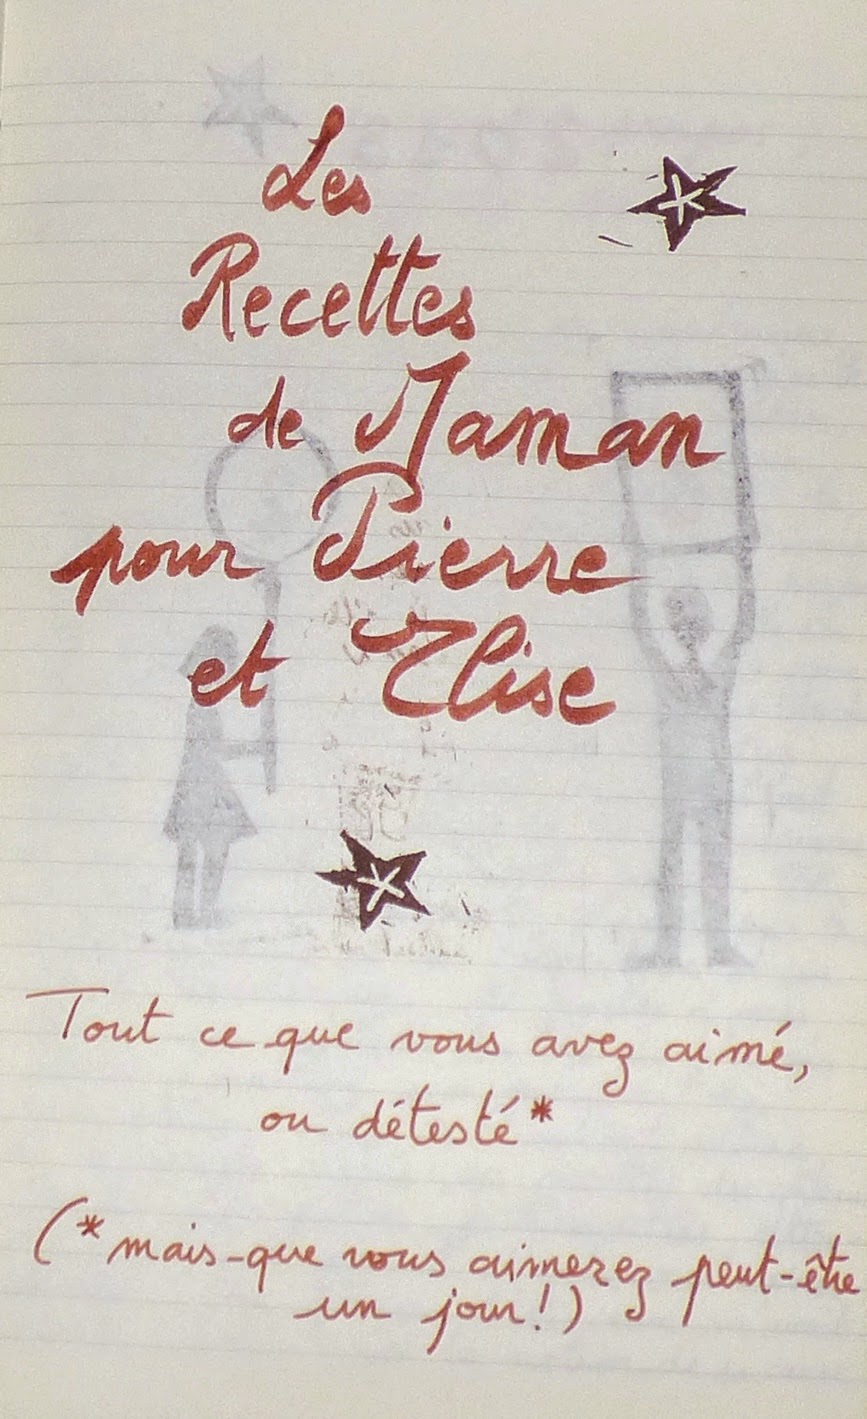 Les
Recettes
de Maman
pour Pierre
et Elise
Tout ce que vous avez aimé,
ou détesté*
(*mais-que vous aimerez peut-être
un jour!)